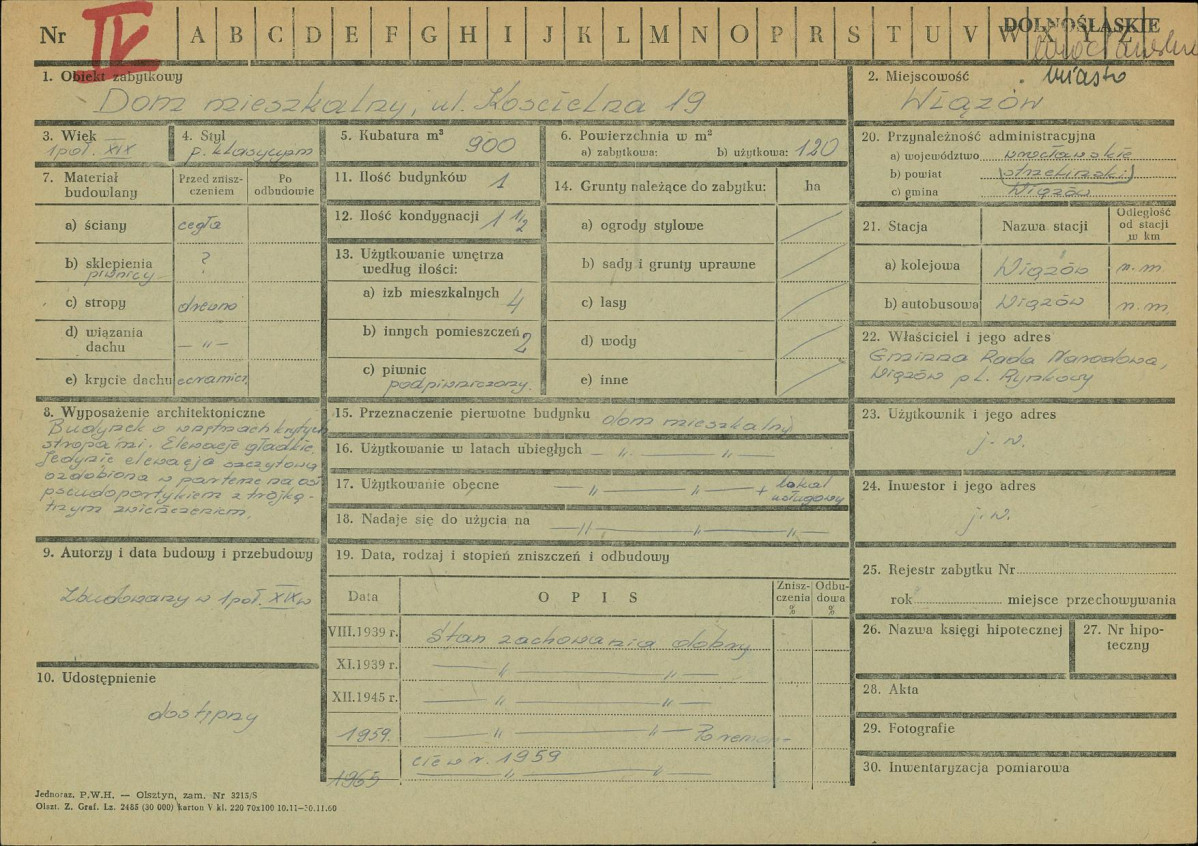 Nr IV A B C D E F G H I J K L M N O P R S T U V W X Y Z
DOLNOŚLĄSKIE
miasto
1. Obiekt zabytkowy
Dom mieszkalny, ul. Kościelna 19
2. Miejscowość
Wiązów
3. Wiek
1 poł. XIX
4. Styl
p. klasycyzm
5. Kubatura m³ 900
6. Powierzchnia w m²
a) zabytkowa: b) użytkowa: 120
20. Przynależność administracyjna
a) województwo wrocławskie
b) powiat strzeliński
c) gmina Wiązów
7. Materiał budowlany
Przed zniszczeniem
Po odbudowie
a) ściany cegła
b) sklepienia piwnicy ?
c) stropy drewno
d) wiązania dachu — „ —
e) krycie dachu ceramicz.
11. Ilość budynków 1
12. Ilość kondygnacji 1 1/2
13. Użytkowanie wnętrza według ilości:
a) izb mieszkalnych 4
b) innych pomieszczeń 2
c) piwnic
podpiwniczony.
14. Grunty należące do zabytku: ha
a) ogrody stylowe
b) sady i grunty uprawne
c) lasy
d) wody
e) inne
21. Stacja Nazwa stacji Odległość od stacji w km
a) kolejowa Wiązów n. m.
b) autobusowa Wiązów n. m.
22. Właściciel i jego adres
Gminna Rada Narodowa,
Wiązów pl. Rynkowy
8. Wyposażenie architektoniczne
Budynek o wnętrzach krytych
stropami. Elewacje gładkie,
jedynie elewacja szczytowa
ozdobiona w parterze na osi
pseudoportykiem z trójką-
tnym zwieńczeniem.
15. Przeznaczenie pierwotne budynku dom mieszkalny
16. Użytkowanie w latach ubiegłych — „ — „ —
17. Użytkowanie obecne — „ — „ — + lokal
usługowy
18. Nadaje się do użycia na — „ — „ — „ —
23. Użytkownik i jego adres
j. w.
24. Inwestor i jego adres
j. w.
9. Autorzy i data budowy i przebudowy
Zbudowany w 1 poł. XIX w
10. Udostępnienie
dostępny
19. Data, rodzaj i stopień zniszczeń i odbudowy
Data OPIS Zniszczenia % Odbudowa %
VIII.1939 r. stan zachowania dobry
XI.1939 r. — „ — „ —
XII.1945 r. — „ — „ —
1959. — „ — „ — Po remon-
cie w r. 1959
1965 — „ — „ —
25. Rejestr zabytku Nr
rok miejsce przechowywania
26. Nazwa księgi hipotecznej
27. Nr hipoteczny
28. Akta
29. Fotografie
30. Inwentaryzacja pomiarowa
Jednoraz. P.W.H. — Olsztyn, zam. Nr 3215/S
Olszt. Z. Graf. Lz. 2485 (30 000) karton V kl. 220 70x100 10.11—30.11.60